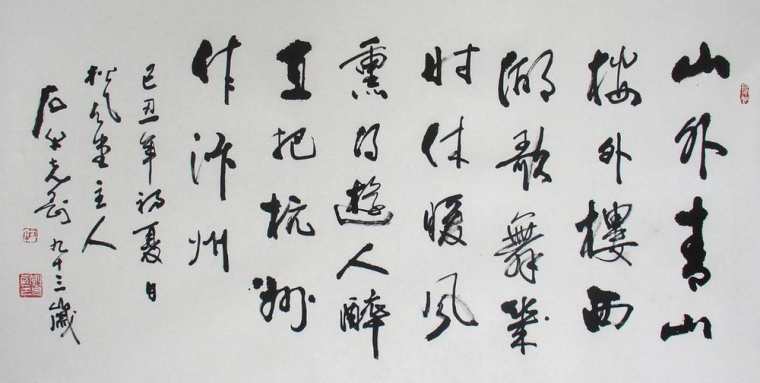 山外青山
楼外樓西
湖歌舞幾
时休暖风
熏得遊人醉
直把杭州
作汴州
己丑年初夏日
松风堂主人
石 九十三歲